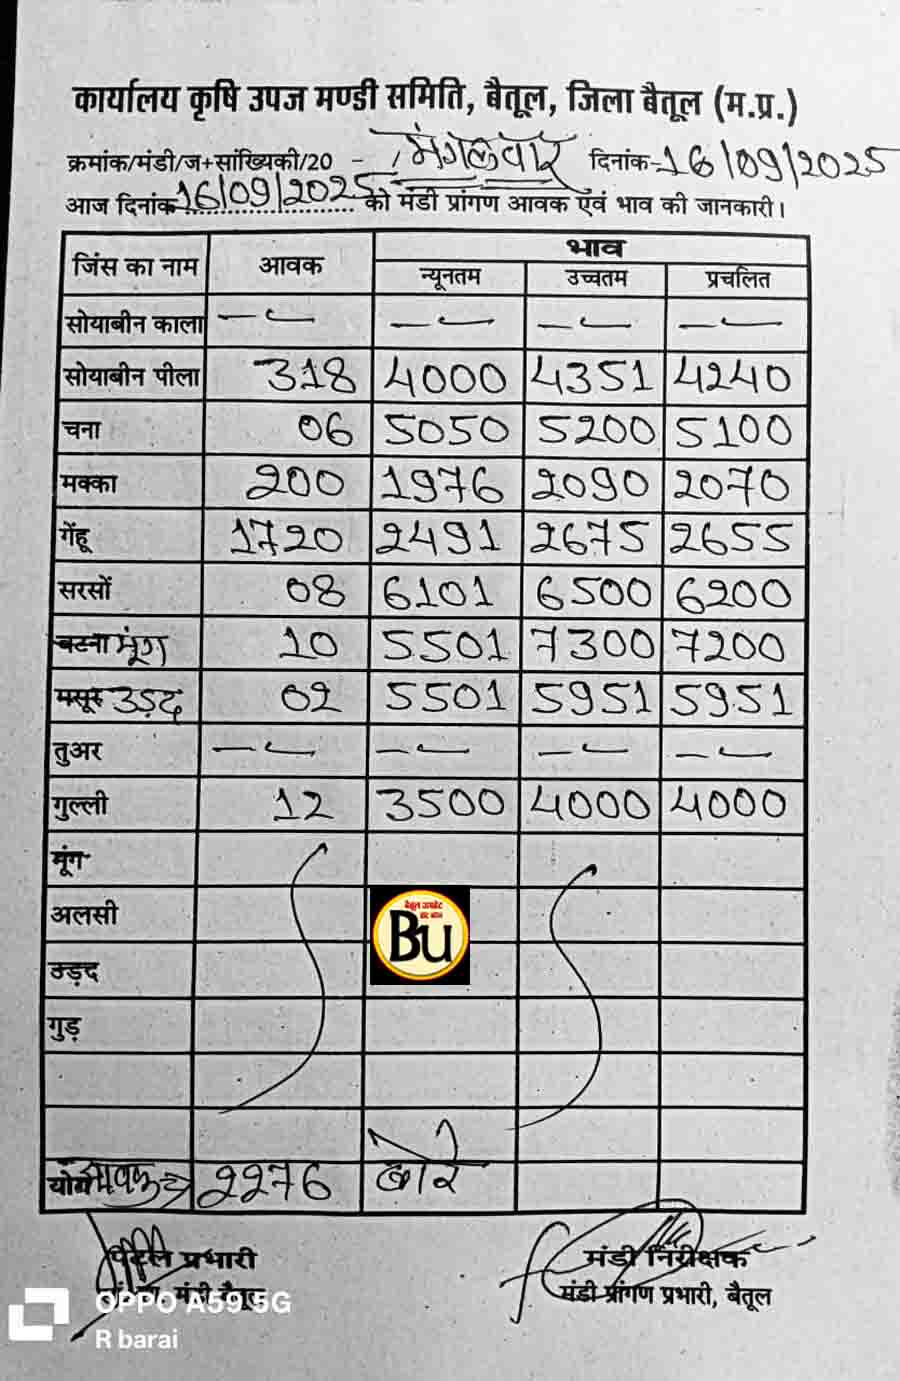 कार्यालय कृषि उपज मण्डी समिति, बैतूल, जिला बैतूल (म.प्र.)
क्रमांक/मंडी/ज+सांख्यिकी/20 - मंगलवार दिनांक-16/09/2025
आज दिनांक 16/09/2025 को मंडी प्रांगण आवक एंव भाव की जानकारी।
जिंस का नाम आवक भाव
न्यूनतम उच्चतम प्रचलित
सोयाबीन काला — — — —
सोयाबीन पीला 318 4000 4351 4240
चना 06 5050 5200 5100
मक्का 200 1976 2090 2070
गेंहू 1720 2491 2675 2655
सरसों 08 6101 6500 6200
बटना मूंग 10 5501 7300 7200
मसूर उड़द 02 5501 5951 5951
तुअर — — — —
गुल्ली 12 3500 4000 4000
मूंग
अलसी
उड़द
गुड़
योग आवक → 2276 बोरे
बैतूल अपडेट
BU
पटल प्रभारी मंडी निरीक्षक
मंडी बैतूल मंडी प्रांगण प्रभारी, बैतूल
OPPO A59 5G
R barai